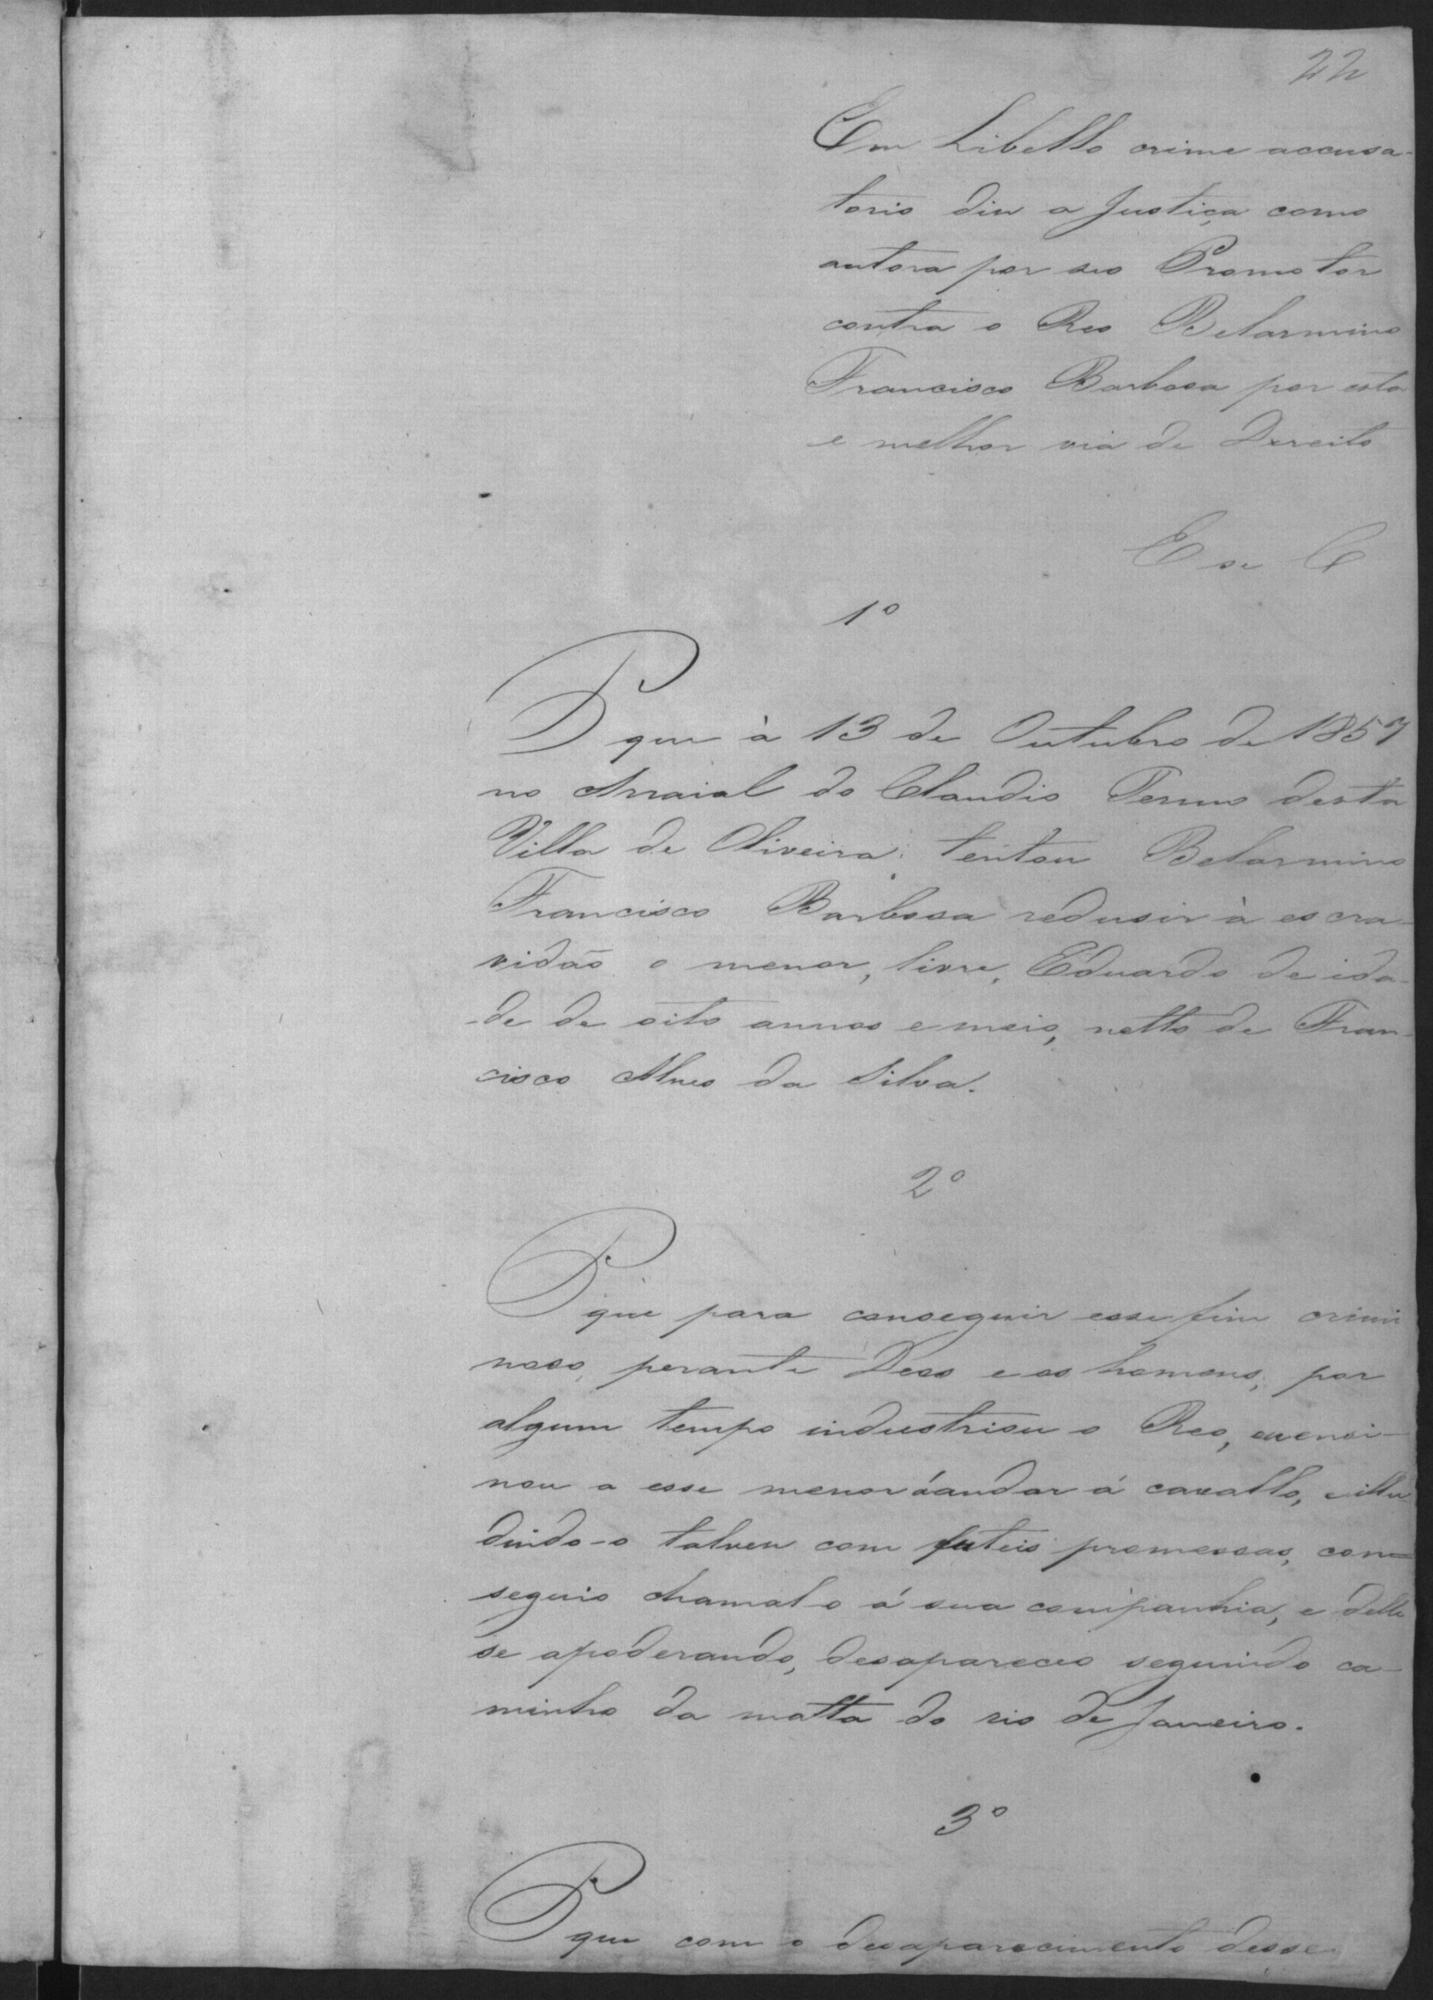 22
Em Libello crime accusa-
torio diz a Justiça como
autora por seo Promotor
contra o Reo Belarmino
Francisco Barbosa por esta
e melhor via de Dereito
E se C
1º
P que à 13 de Outubro de 1857
no Arraial do Claudio Termo desta
Villa de Oliveira, tentou Belarmino
Francisco Barbosa redusir à escra-
vidão o menor, livre, Eduardo de ida-
-de de oito annos e meio, netto de Fran-
cisco Alves da Silva.
2º
P que para conseguir esse fim crimi
noso, perante Deos e os homens, por
algum tempo industriou o Reo, e ensi-
nou a esse menor á andar á cavallo, e illu
dindo-o talvez com futeis promessas, con-
seguio chamal o á sua companhia, e delle
se apoderando, desapareceo seguindo ca-
minho da matta do rio de Janeiro.
3º
P que com o desaparecimento desse